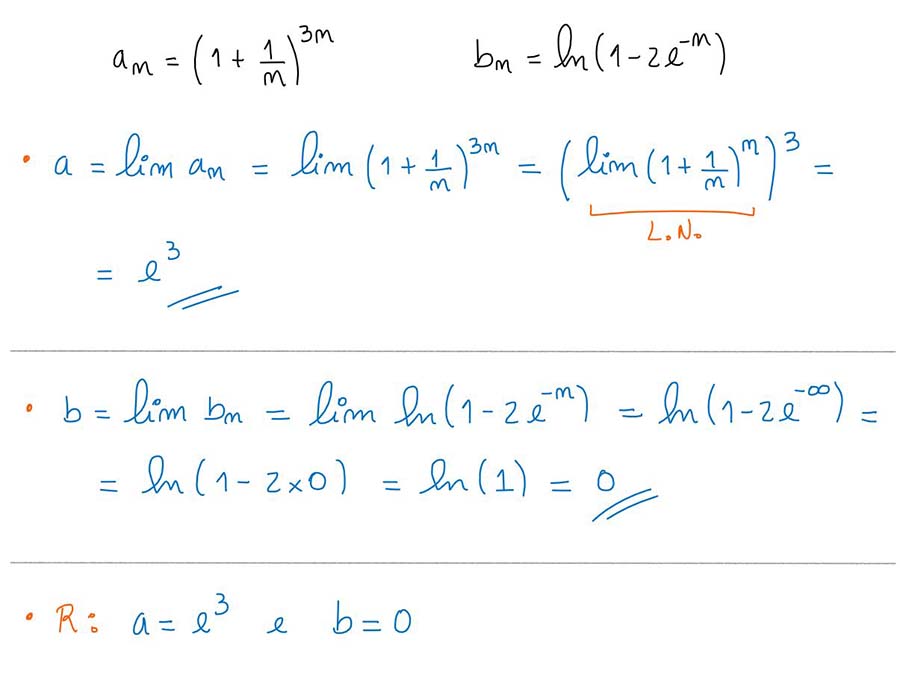 aₙ = (1 + 1/n)³ⁿ    bₙ = ln(1 - 2e⁻ⁿ)
• a = lim aₙ = lim (1 + 1/n)³ⁿ = (lim (1 + 1/n)ⁿ)³ =
L.N.
= e³
• b = lim bₙ = lim ln(1 - 2e⁻ⁿ) = ln(1 - 2e^(-∞)) =
= ln(1 - 2×0) = ln(1) = 0
• R: a = e³ e b = 0